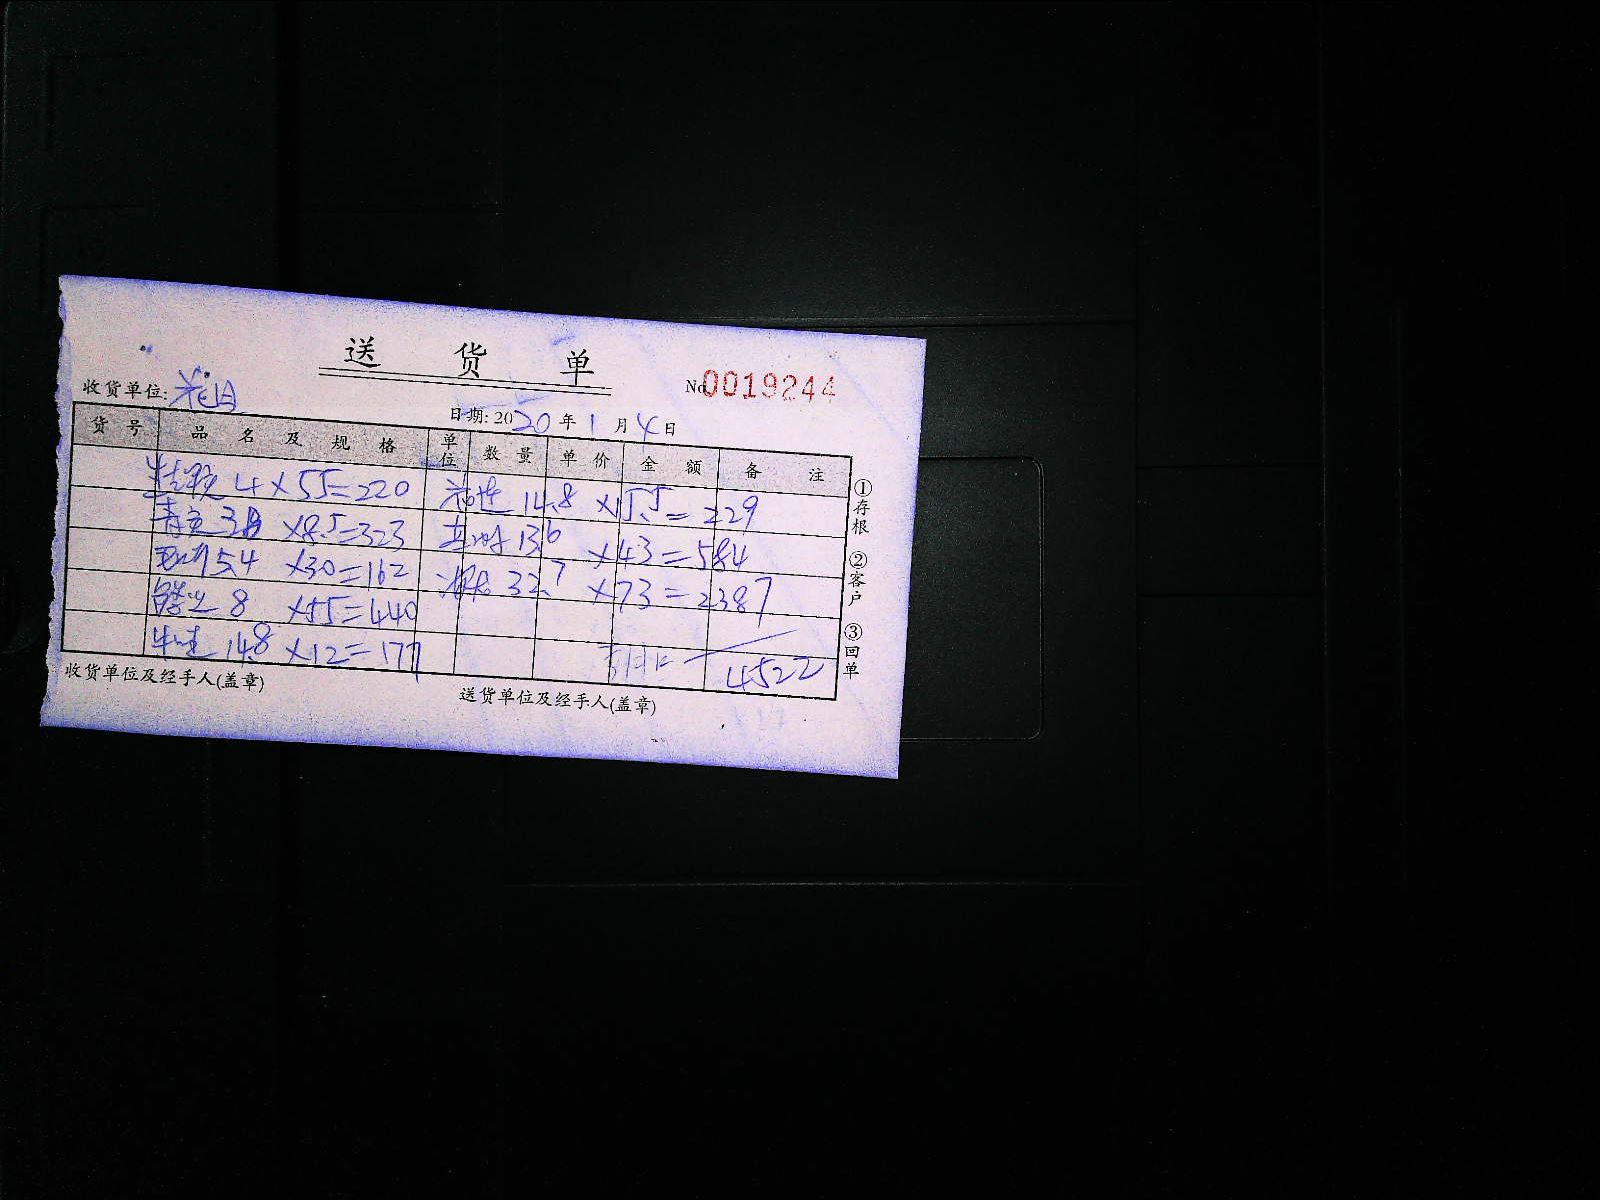 送 货 单
收货单位: 花日 No 0019244
日期: 2020 年 1 月 4 日
货 号 品 名 及 规 格 单位 数 量 单 价 金 额 备 注
4×55=220 14.8 ×15.5=229
38 ×8.5=323 13.6 ×43=584
5.4 ×30=162 32.7 ×73=2387
8 ×55=440
14.8 ×12=177 4522
①存根 ②客户 ③回单
收货单位及经手人(盖章) 送货单位及经手人(盖章)